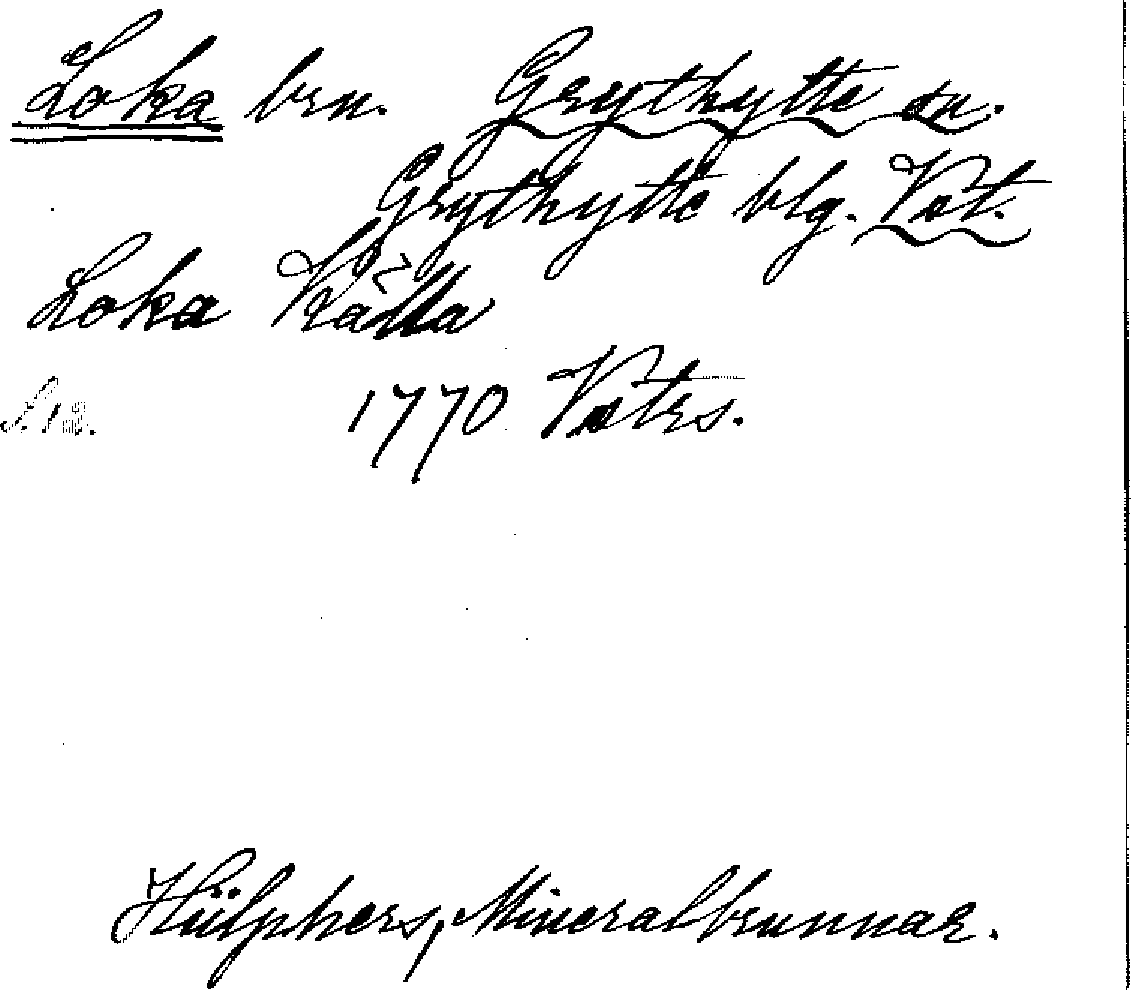 Loka brn. Grythytte sn.
Grythytte blg. Vst.
Loka Källa
1770 Vstrs.
Hülphers, Mineralbrunnar.